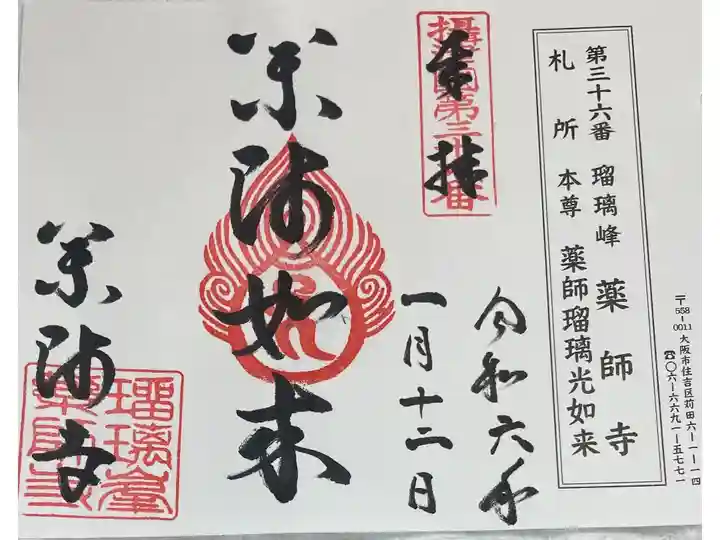 第三十六番 瑠璃峰 薬師寺
札所 本尊 薬師瑠璃光如来
〒558-0011 大阪市住吉区苅田六-一-一四
☎〇六-六六九一-五七七一
奉拝
令和六年
一月十二日
薬師如来
薬師寺
瑠璃峯
薬師寺